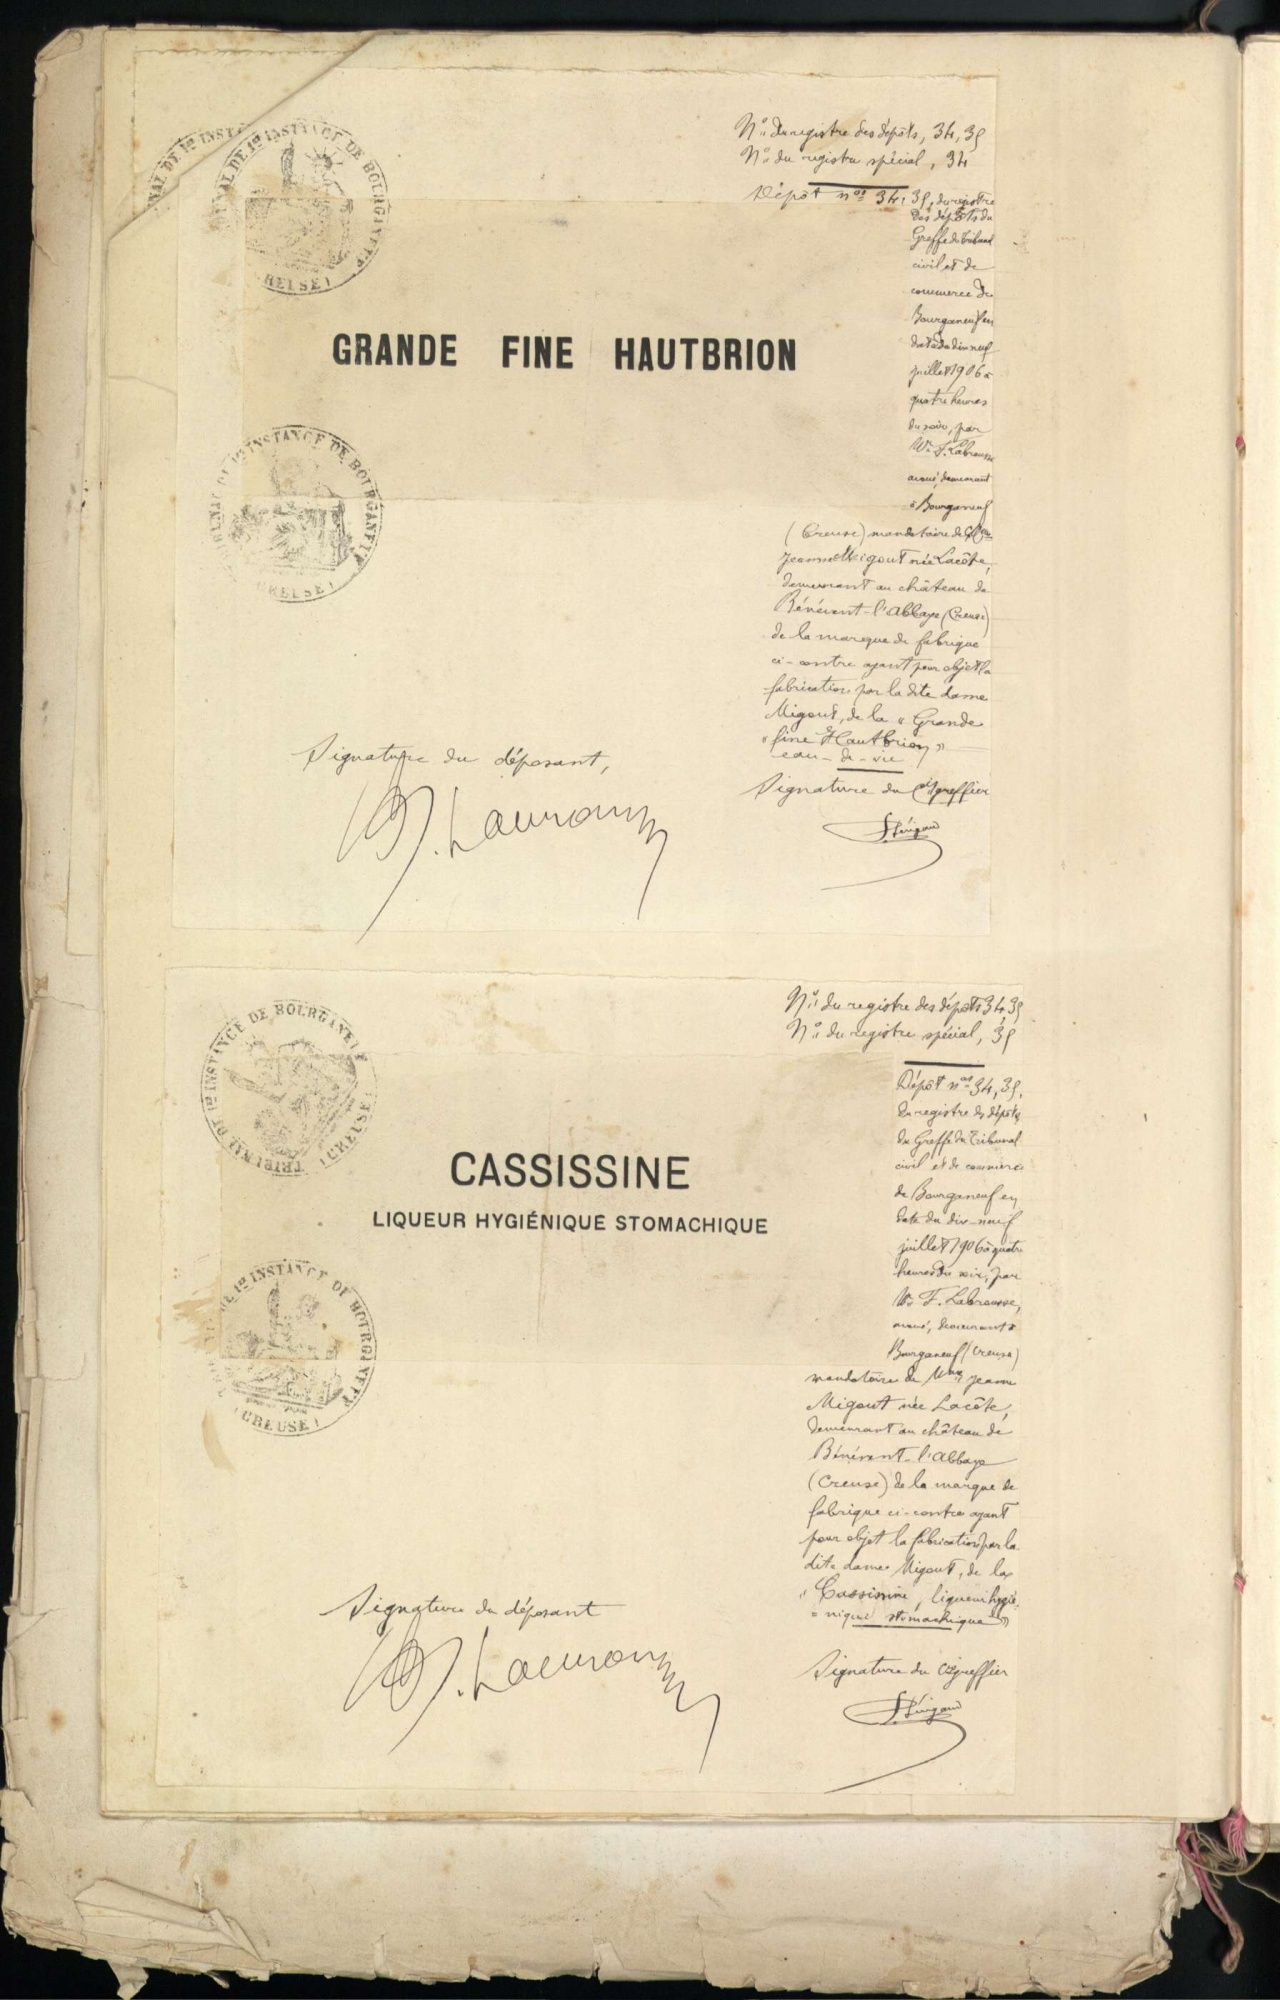 TRIBUNAL DE 1re INSTANCE DE BOURGANEUF
(CREUSE)
Nos du registre des dépôts, 34, 35
No du registre spécial, 34
Dépôt nos 34, 35, du registre
des dépôts du
Greffe du Tribunal
civil et de
commerce de
Bourganeuf en
date du dix neuf
juillet 1906 à
quatre heures
du soir, par
Me F. Labrousse
avoué, demeurant
à Bourganeuf
(Creuse) mandataire de Mme
Jeanne Migout née Lacôte,
demeurant au château de
Bénévent-l'Abbaye (Creuse)
de la marque de fabrique
ci-contre ayant pour objet la
fabrication par la dite dame
Migout, de la « Grande
« fine Hautbrion »
eau-de-vie
GRANDE FINE HAUTBRION
TRIBUNAL DE 1re INSTANCE DE BOURGANEUF
(CREUSE)
Signature du déposant,
Signature du greffier
TRIBUNAL DE 1re INSTANCE DE BOURGANEUF
(CREUSE)
Nos du registre des dépôts 34, 35
No du registre spécial, 35
Dépôt nos 34, 35,
du registre des dépôts
du Greffe du Tribunal
civil et de commerce
de Bourganeuf en
date du dix-neuf
juillet 1906 à quatre
heures du soir, par
Me F. Labrousse,
avoué, demeurant à
Bourganeuf (Creuse)
mandataire de Mme Jeanne
Migout née Lacôte,
demeurant au château de
Bénévent-l'Abbaye
(Creuse) de la marque de
fabrique ci-contre ayant
pour objet la fabrication par la
dite dame Migout, de la
« Cassissine, liqueur hygié-
= nique stomachique »
CASSISSINE
LIQUEUR HYGIÉNIQUE STOMACHIQUE
TRIBUNAL DE 1re INSTANCE DE BOURGANEUF
(CREUSE)
Signature du déposant
Signature du greffier